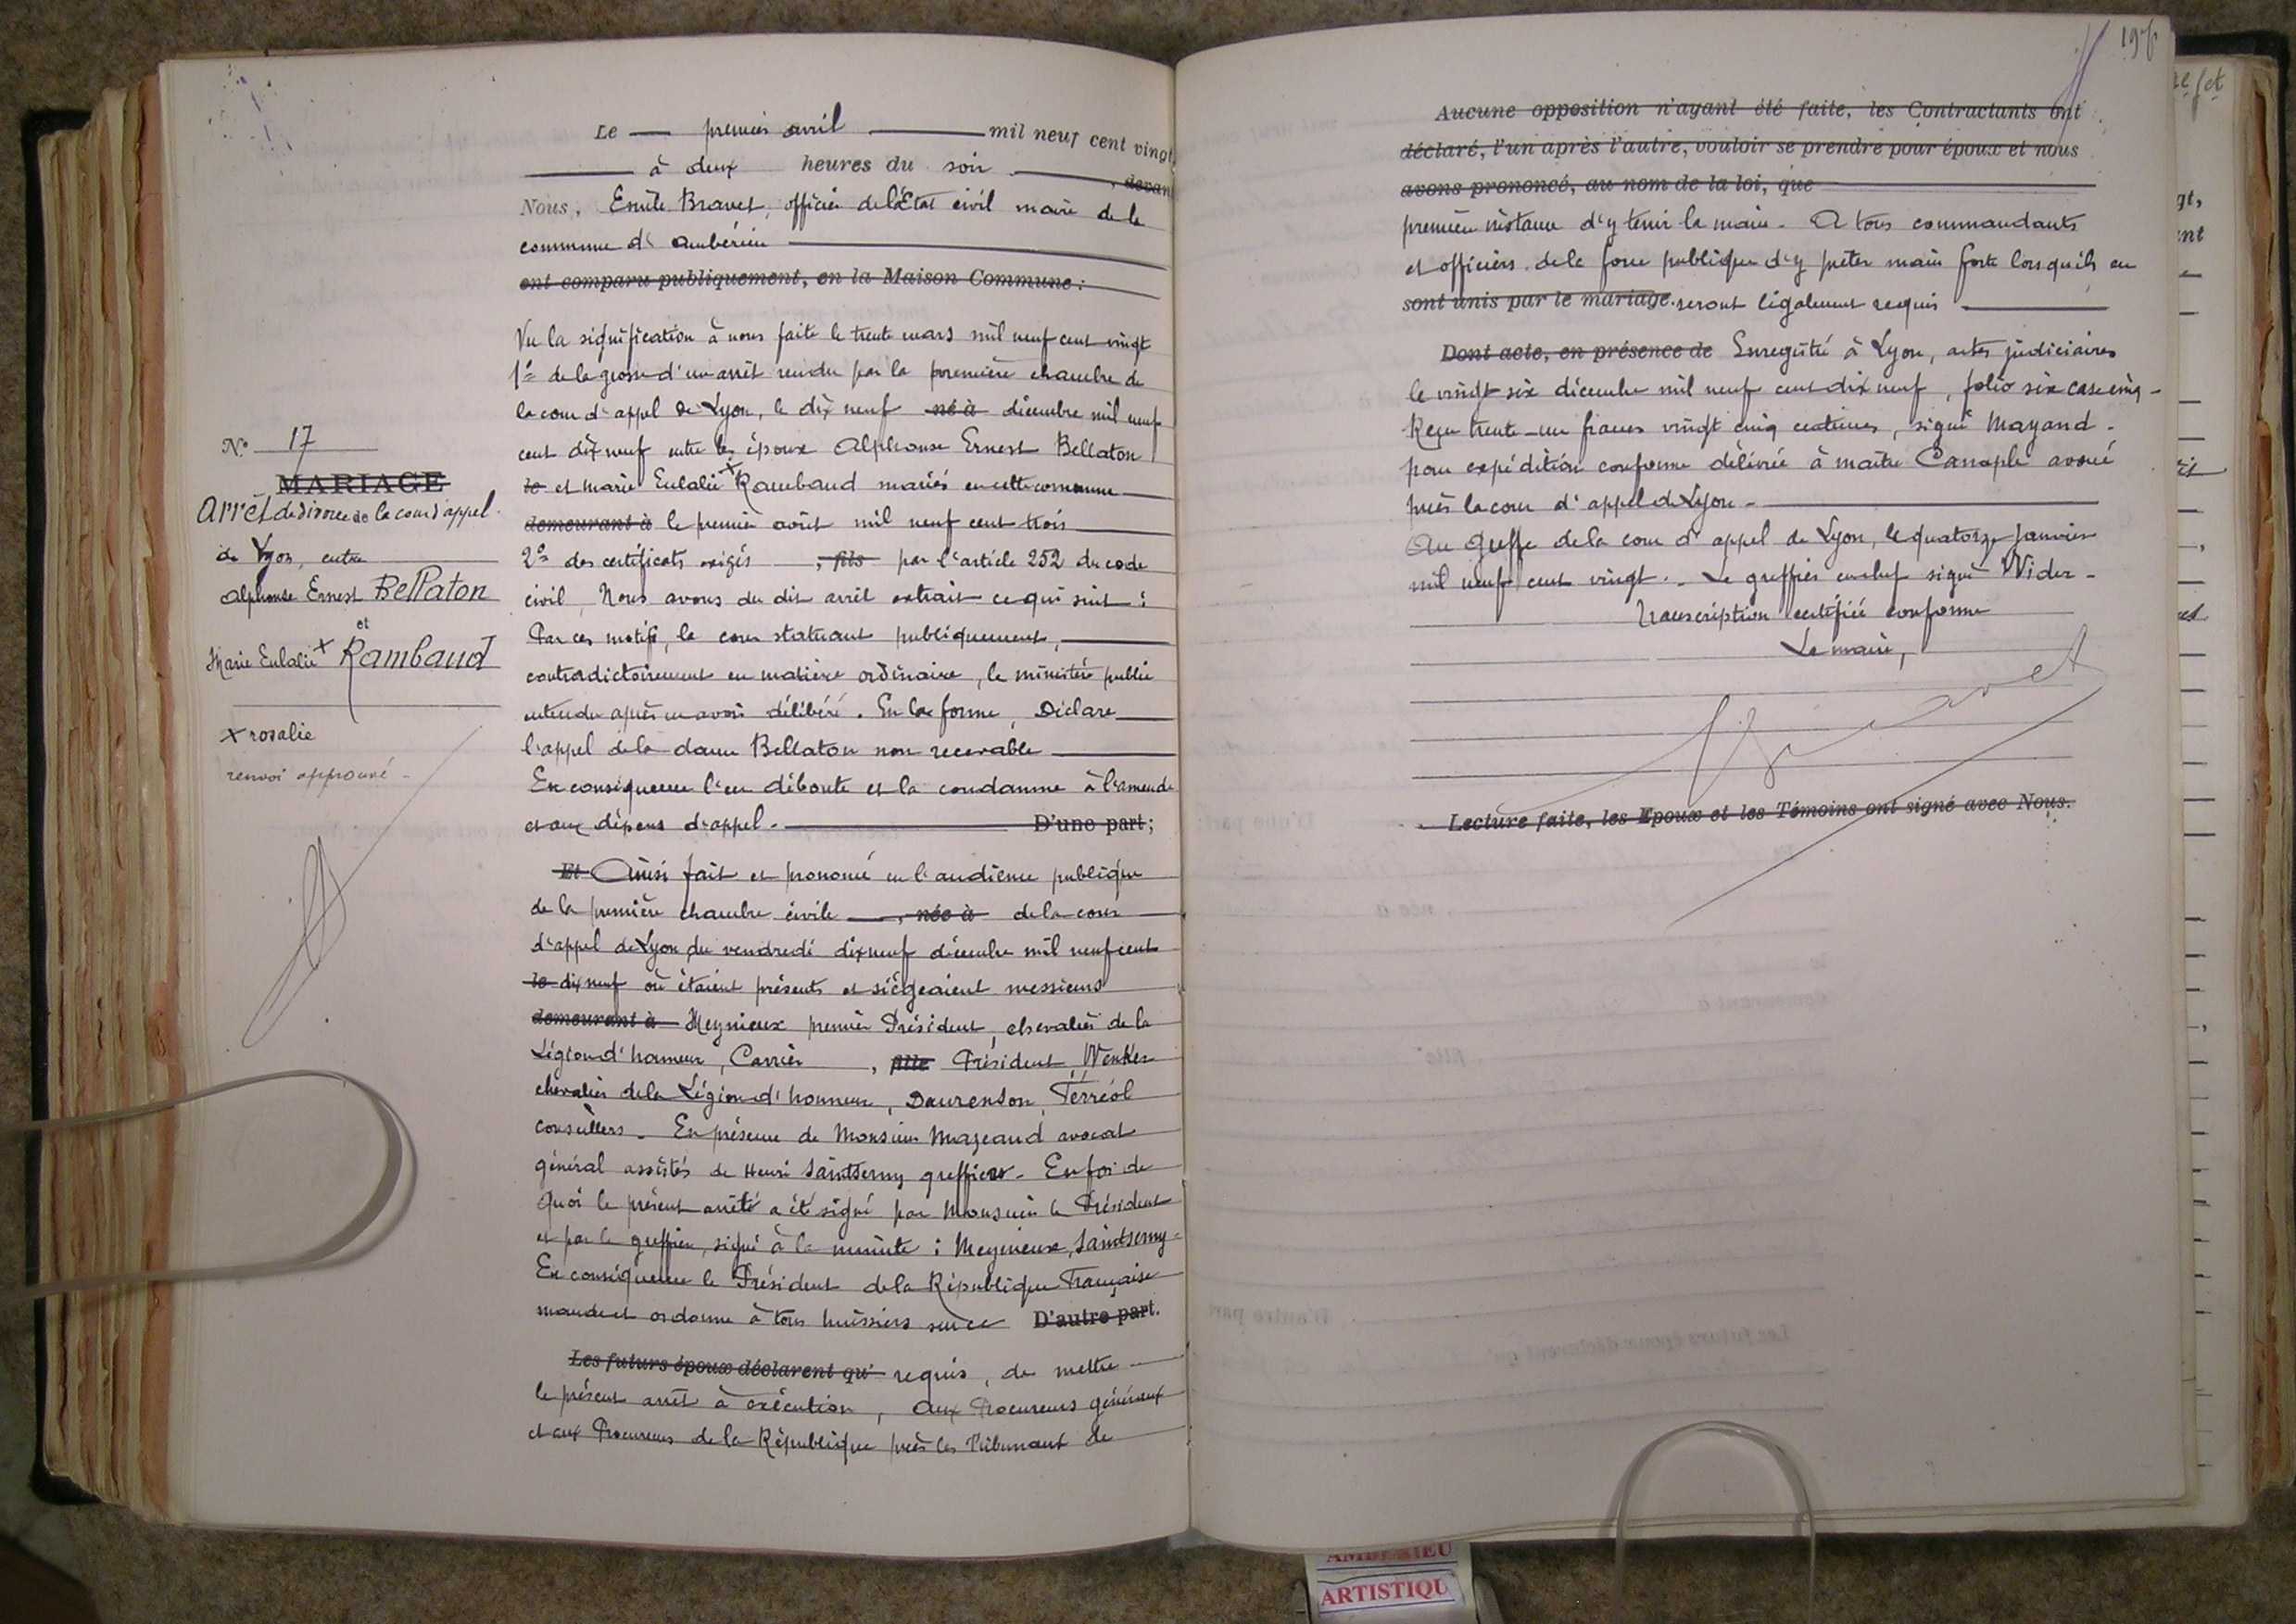 Le premier avril mil neuf cent vingt
à deux heures du soir, devant
Nous, Emile Bravet, officier de l'Etat civil maire de la
commune d'Ambérieu
ont comparu publiquement, en la Maison Commune :
Vu la signification à nous faite le trente mars mil neuf cent vingt
1º de la grosse d'un arrêt rendu par la première chambre de
la cour d'appel de Lyon, le dix neuf né à décembre mil neuf
cent dix neuf entre les époux Alphonse Ernest Bellaton
le et Marie Eulalie x Rambaud mariés en cette commune
demeurant à le premier août mil neuf cent trois
2º des certificats exigés , fils par l'article 252 du code
civil, Nous avons du dit arrêt extrait ce qui suit :
Par ces motifs, la cour statuant publiquement,
contradictoirement en matière ordinaire, le ministère public
entendu après en avoir délibéré. En la forme, Déclare
l'appel de la dame Bellaton non recevable
En conséquence l'en déboute et la condamne à l'amende
et aux dépens d'appel. D'une part ;
Et Ainsi fait et prononcé en l'audience publique
de la première chambre civile , née à de la cour
d'appel de Lyon du vendredi dix neuf décembre mil neuf cent
le dix neuf où étaient présents et siégeaient messieurs
demeurant à Meynieux premier Président, chevalier de la
Légion d'honneur, Carrier , fille Président, Wenker
chevalier de la Légion d'honneur, Daurenson, Terréol
conseillers. En présence de Monsieur Mazeaud avocat
général assistés de Henri Saintserny greffier. En foi de
quoi le présent arrêté a été signé par Monsieur le Président
et par le greffier, signé à la minute : Meynieux, Saintserny.
En conséquence le Président de la République Française
mande et ordonne à tous huissiers sur ce D'autre part.
Les futurs époux déclarent qu' requis, de mettre
le présent arrêt à exécution, Aux Procureurs généraux
et aux Procureurs de la République près les Tribunaux de
Nº 17
MARIAGE
Arrêt de divorce de la cour d'appel
de Lyon, entre
Alphonse Ernest Bellaton
et
Marie Eulalie x Rambaud
x rosalie
renvoi approuvé
197
Aucune opposition n'ayant été faite, les Contractants ont
déclaré, l'un après l'autre, vouloir se prendre pour époux et nous
avons prononcé, au nom de la loi, que
première instance d'y tenir la main. A tous commandants
et officiers de la force publique d'y prêter main forte lorsqu'ils en
sont unis par le mariage. seront légalement requis
Dont acte, en présence de Enregistré à Lyon, actes judiciaires
le vingt six décembre mil neuf cent dix neuf, folio six case cinq -
Reçu trente-un francs vingt cinq centimes, signé Mayand.
pour expédition conforme délivrée à maître Canaple avoué
près la cour d'appel de Lyon.
Au Greffe de la cour d'appel de Lyon, le quatorze Janvier
mil neuf cent vingt. Le greffier en chef signé Wider -
Transcription certifiée conforme
Le maire,
Bravet
Lecture faite, les Epoux et les Témoins ont signé avec Nous.
ARTISTIQU